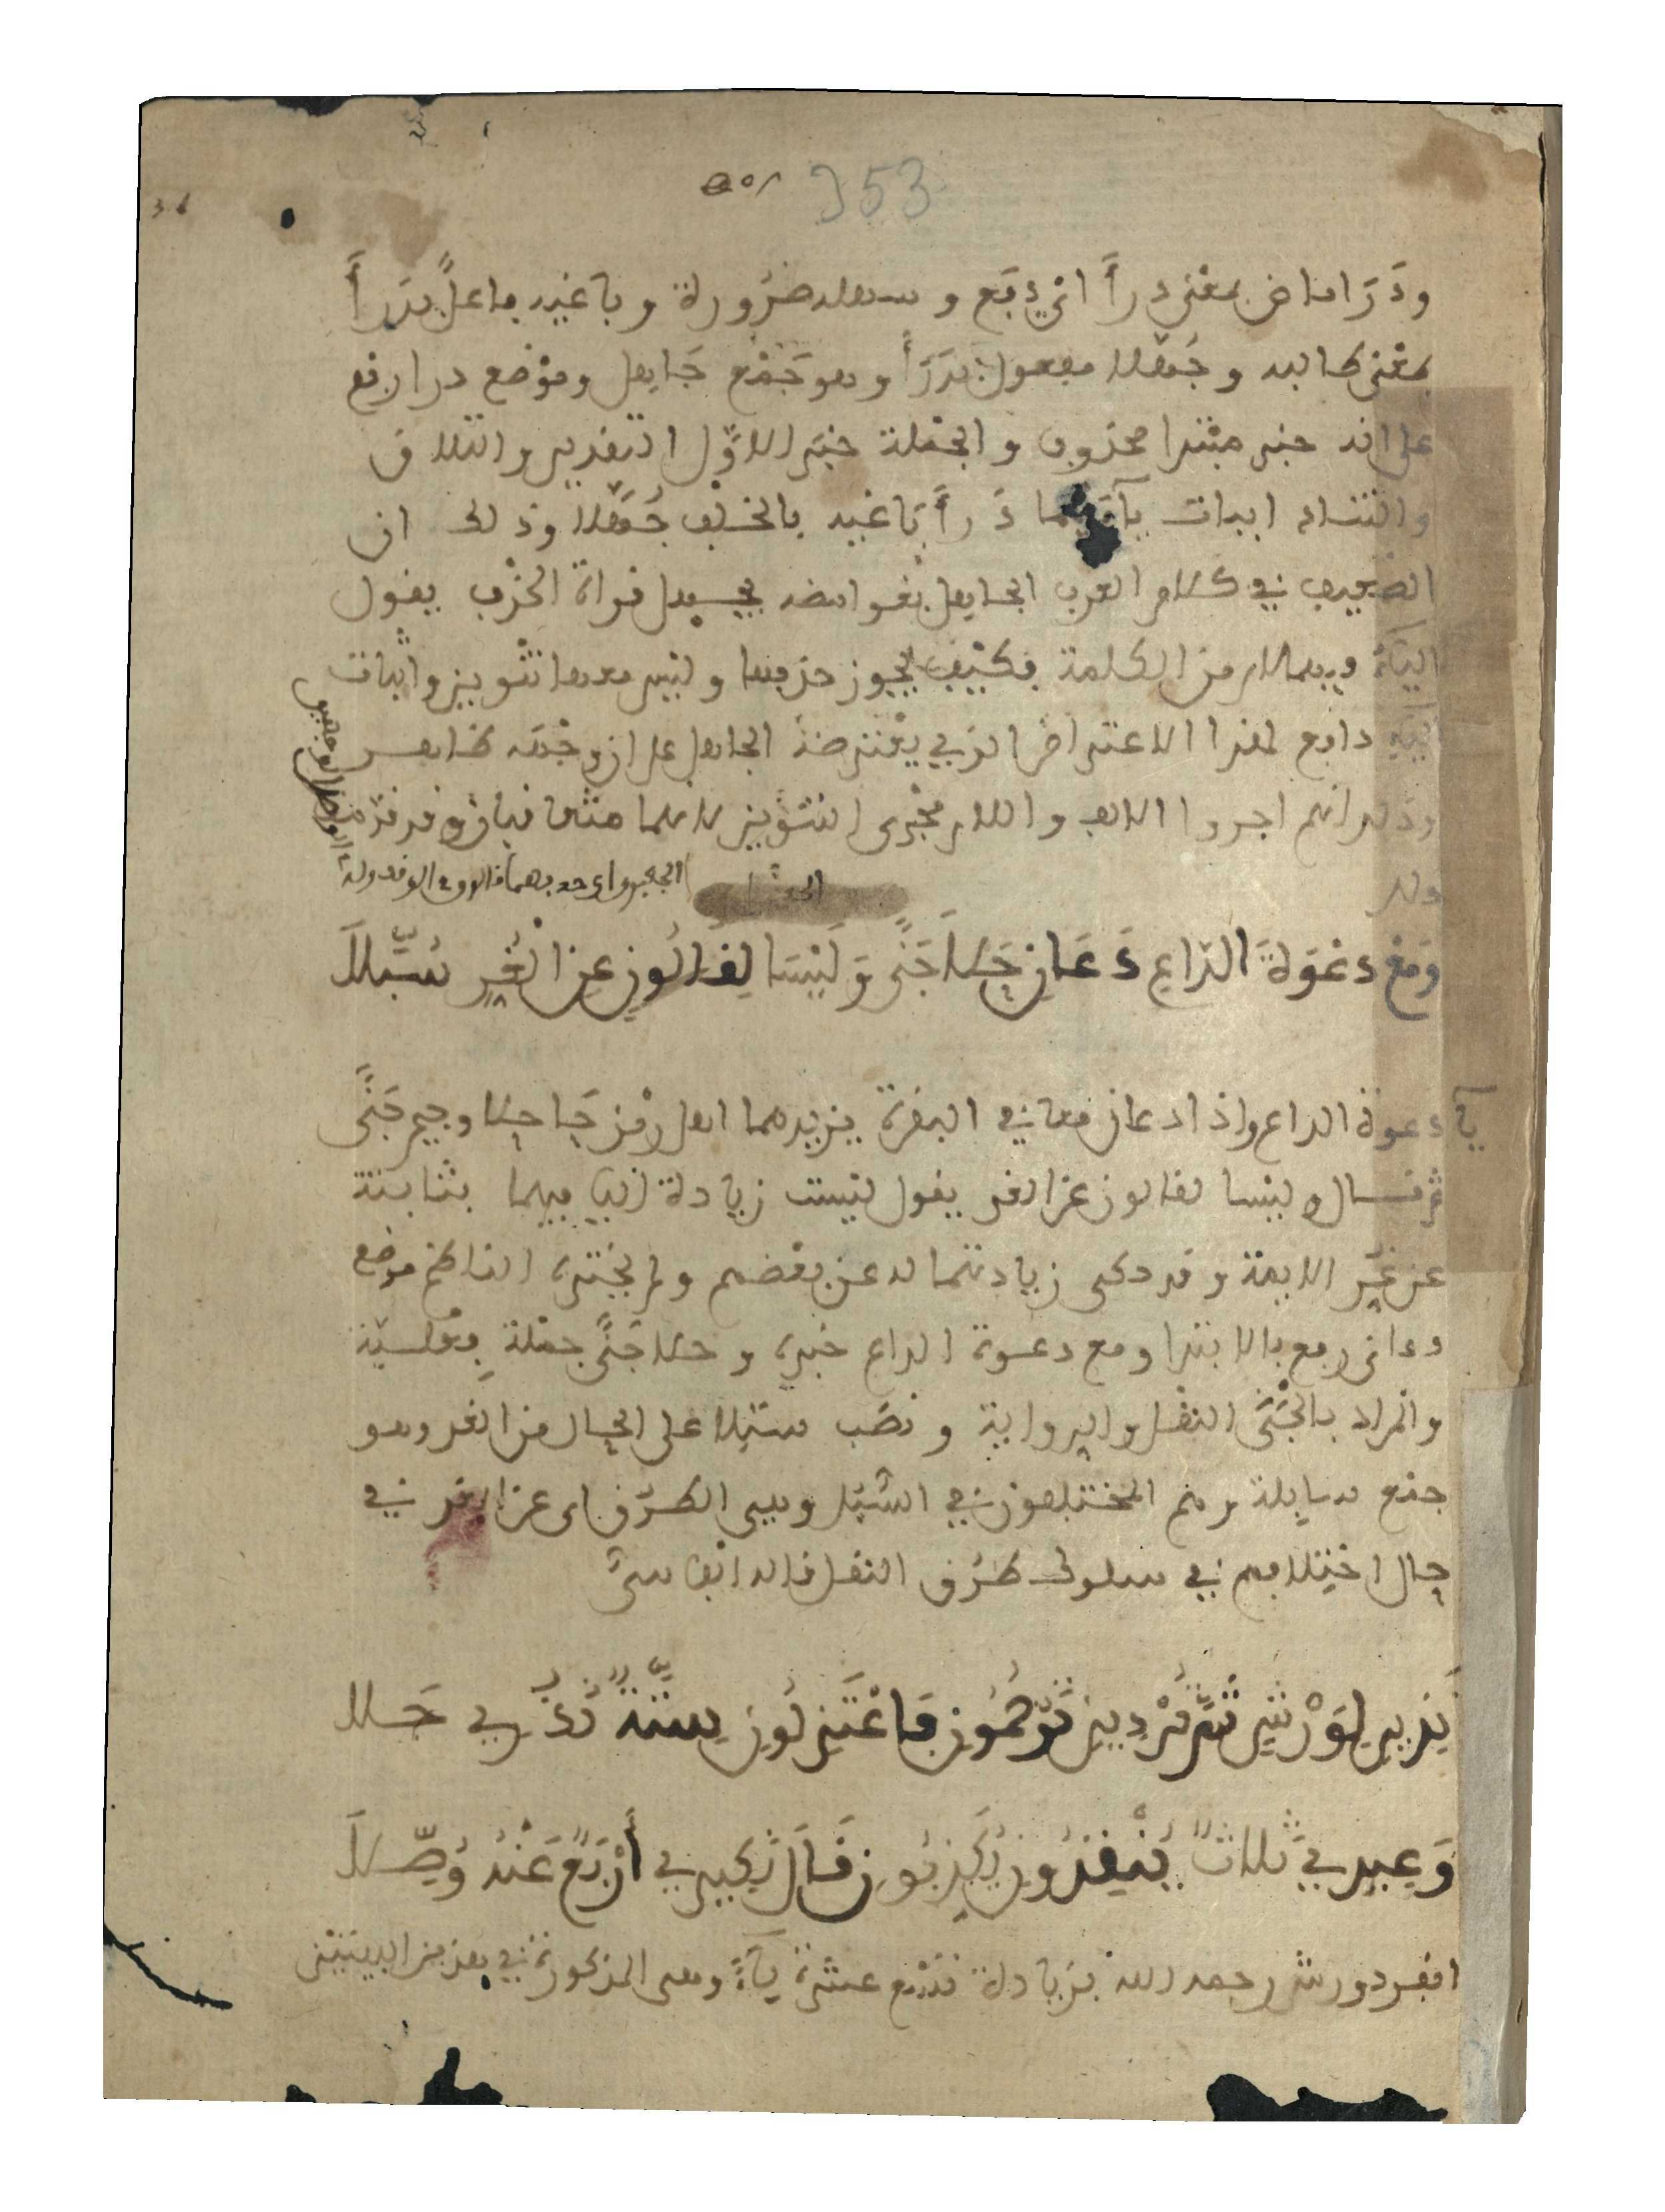 353
ودرا ماض بمعنى درأ اي دفع وسهله ضرورة وباغيه فاعل بدرأ
بمعنى طالبه وجهلا مفعول بدرأ وهو جمع جاهل وموضع درا رفع
على انه خبر مبتدا محذوف والجملة خبر الاول التقدير والتلاق
والتناد اثبات يآءيهما درأ باغيه بالخلف جهلا وذلك ان
الضعيف في كلام العرب الجاهل بغوامضه قراة الحذف يقول
الياء فيهما لام من الكلمة فكيف يجوز حذفها وليس معها تنوين واثبات
اليه دافع لهذا الاعتراض الذي يعترضه الجاهل على ان وجهه ظاهر
وذلك انهم اجروا الالف واللام مجرى التنوين لانهما متعاقبان وقد قدمت
ومع دعوة الداع دعان حلا جنى وليسا لقالون عن الغر سبلا
يآ دعوة الداع واذا دعان معا في البقرة يزيدهما اهل رمز حا حلا وجيم جنى
ثم قال وليسا لقالون عن الغر يقول ليست زيادة اليا فيهما بثابتة
عن غير الايمة وقد حكى زيادتهما له عن بعضهم ولم يخترة الناظم موضع
دعانى رفع بالابتدا ومع دعوة الداع خبره وحلا جنى جملة فعلية
والمراد بالجنى النقل والرواية ونصب سبلا على الحال من الغر وهو
جمع سابلة وهم المختلفون في السبل وهي الطرق اى عن الغر في
حال اختلافهم في سلوك طرق النقل قاله ابو شىٔ
نذيرى لورش ثم تردين ترجمون فاعتزلون ستة نذرى جلا
وعيدى ثلاث ينقذون يكذبون قال نكيرى أربع عنه وصلا
انفرد ورش رحمه الله بزيادة تسع عشرة يآء وهى المذكورة في هذين البيتين